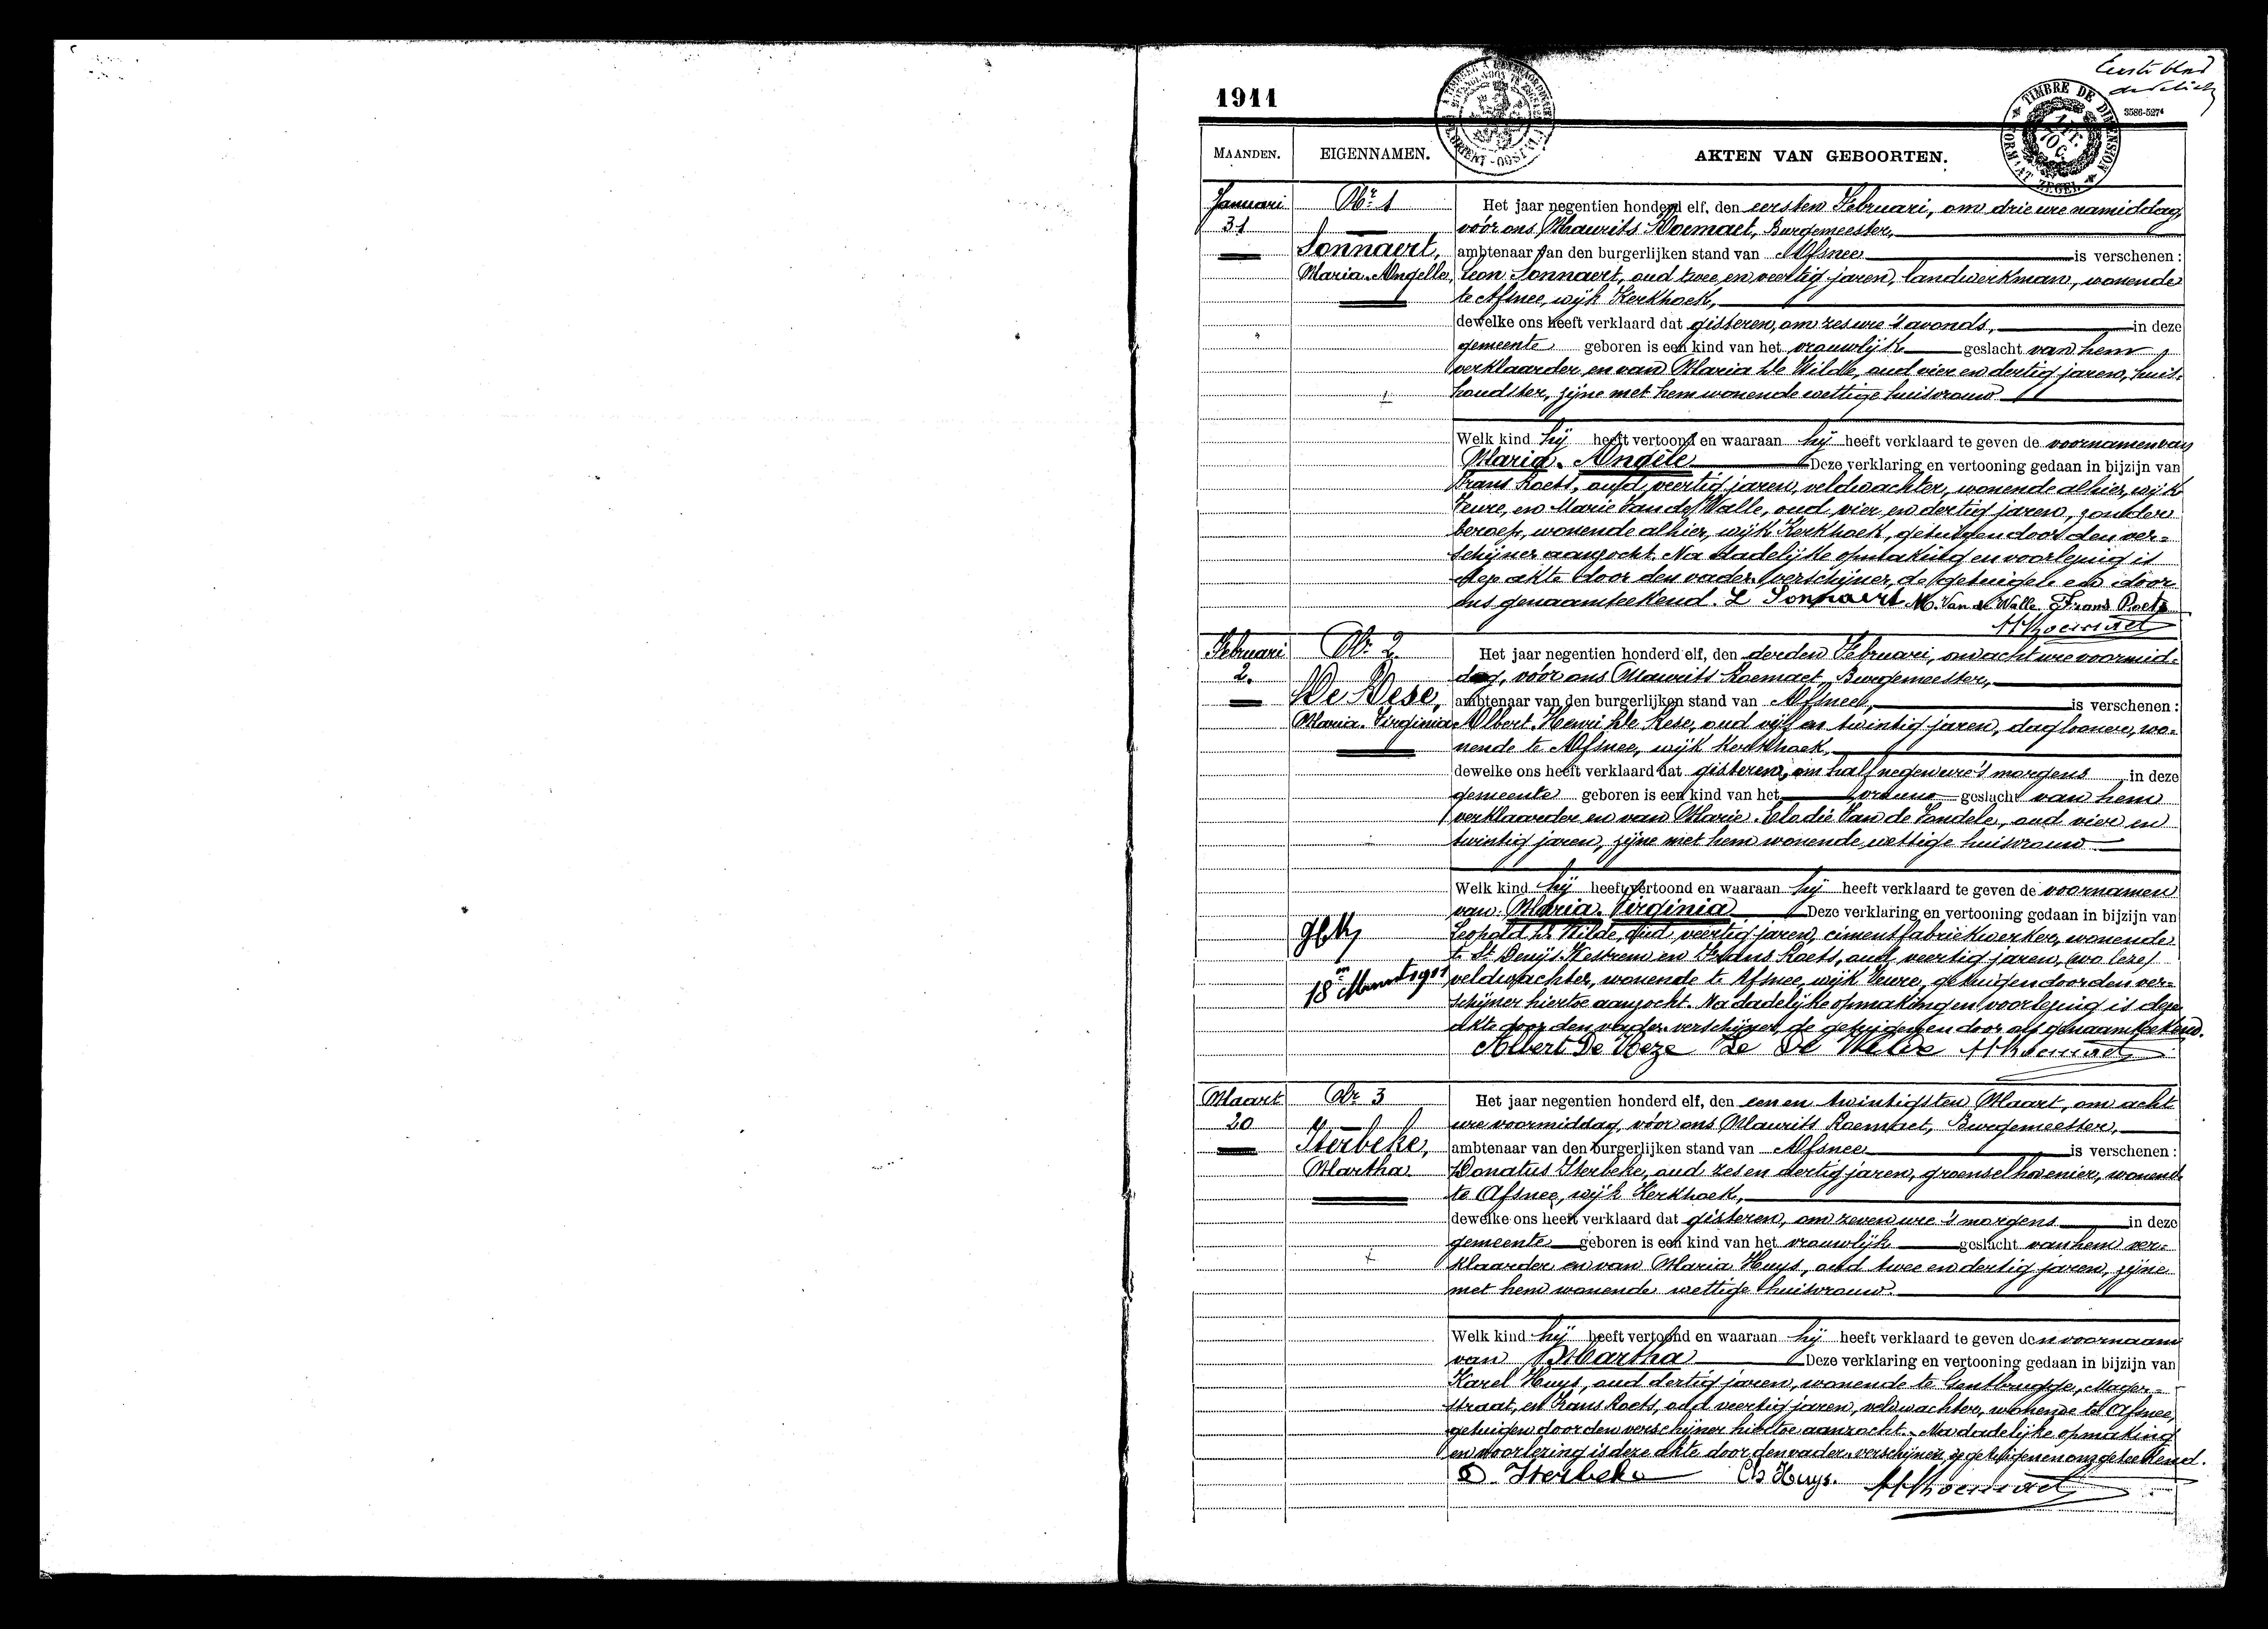 1911
Eerste blad
3586-5274
TIMBRE DE DIMENSION
FORMAAT ZEGEL
MAANDEN.
EIGENNAMEN.
AKTEN VAN GEBOORTEN.
Januari
31
Nr. 1
Sonnaert,
Maria-Angelle,
Het jaar negentien honderd elf, den eersten Februari, om drie ure namiddag,
vóór ons Maurits Roemaet, Burgemeester,
ambtenaar van den burgerlijken stand van Afsnee is verschenen :
Leon Sonnaert, oud twee en veertig jaren, landwerkman, wonende
te Afsnee, wijk Kerkhoek,
dewelke ons heeft verklaard dat gisteren, om zes ure 's avonds, in deze
gemeente geboren is een kind van het vrouwlijk geslacht van hem
verklaarder en van Maria De Wilde, oud vier en dertig jaren, huis-
houdster, zijne met hem wonende wettige huisvrouw
Welk kind hij heeft vertoond en waaraan hij heeft verklaard te geven de voornamen van
Maria-Angèle Deze verklaring en vertooning gedaan in bijzijn van
Frans Roets, oud veertig jaren, veldwachter, wonende alhier, wijk
Veure, en Marie Van de Walle, oud vier en dertig jaren, zonder
beroep, wonende alhier, wijk Kerkhoek, getuigen door den ver-
schijner aanzocht. Na dadelijke opmaking en voorlezing is
deze akte door den vader verschijner, de getuigen en door
ons genaamteekend. L Sonnaert M. Van de Walle Frans Roets
MRoemaet
Februari
2.
Nr. 2
De Rese,
Maria-Virginia
18n Maart 1911
Het jaar negentien honderd elf, den derden Februari, om acht ure voormid-
dag, vóór ons Maurits Roemaet, Burgemeester,
ambtenaar van den burgerlijken stand van Afsnee, is verschenen :
Albert-Henri De Rese, oud vijf en twintig jaren, daglooner, wo-
nende te Afsnee, wijk Kerkhoek,
dewelke ons heeft verklaard dat gisteren, om half negen ure 's morgens in deze
gemeente geboren is een kind van het geslacht van hem
verklaarder en van Marie-Elodie Van de Vondele, oud vier en
twintig jaren, zijne met hem wonende wettige huisvrouw
Welk kind hij heeft vertoond en waaraan hij heeft verklaard te geven de voornamen
van Maria-Virginia Deze verklaring en vertooning gedaan in bijzijn van
Leopold De Wilde, oud veertig jaren, cimentfabriekwerker, wonende
te St Denijs Westrem en Frans Roets, oud veertig jaren,
veldwachter, wonende te Afsnee, wijk Veure, getuigen door den ver-
schijner hiertoe aanzocht. Na dadelijke opmaking en voorlezing is deze
akte door den vader verschijner, de getuigen en door ons genaamteekend.
Albert De Reze Le De Wilde MRoemaet
Maart
20
Nr 3
Iterbeke,
Martha
Het jaar negentien honderd elf, den een en twintigsten Maart, om acht
ure voormiddag, vóór ons Maurits Roemaet, Burgemeester,
ambtenaar van den burgerlijken stand van Afsnee is verschenen :
Donatus Iterbeke, oud zes en dertig jaren, groenselhovenier, wonend
te Afsnee, wijk Kerkhoek,
dewelke ons heeft verklaard dat gisteren, om zeven ure 's morgens in deze
gemeente geboren is een kind van het vrouwlijk geslacht van hem ver-
klaarder en van Maria Huys, oud twee en dertig jaren, zijne
met hem wonende wettige huisvrouw.
Welk kind hij heeft vertoond en waaraan hij heeft verklaard te geven den voornaam
van Martha Deze verklaring en vertooning gedaan in bijzijn van
Karel Huys, oud dertig jaren, wonende te Gentbrugge, Mager-
straat, en Frans Roets, oud veertig jaren, veldwachter, wonende te Afsnee,
getuigen door den verschijner hiertoe aanzocht. Na dadelijke opmaking
en voorlezing is deze akte door den vader verschijner, de getuigen en ons geteekend.
D. Iterbeke Ch Huys. MRoemaet